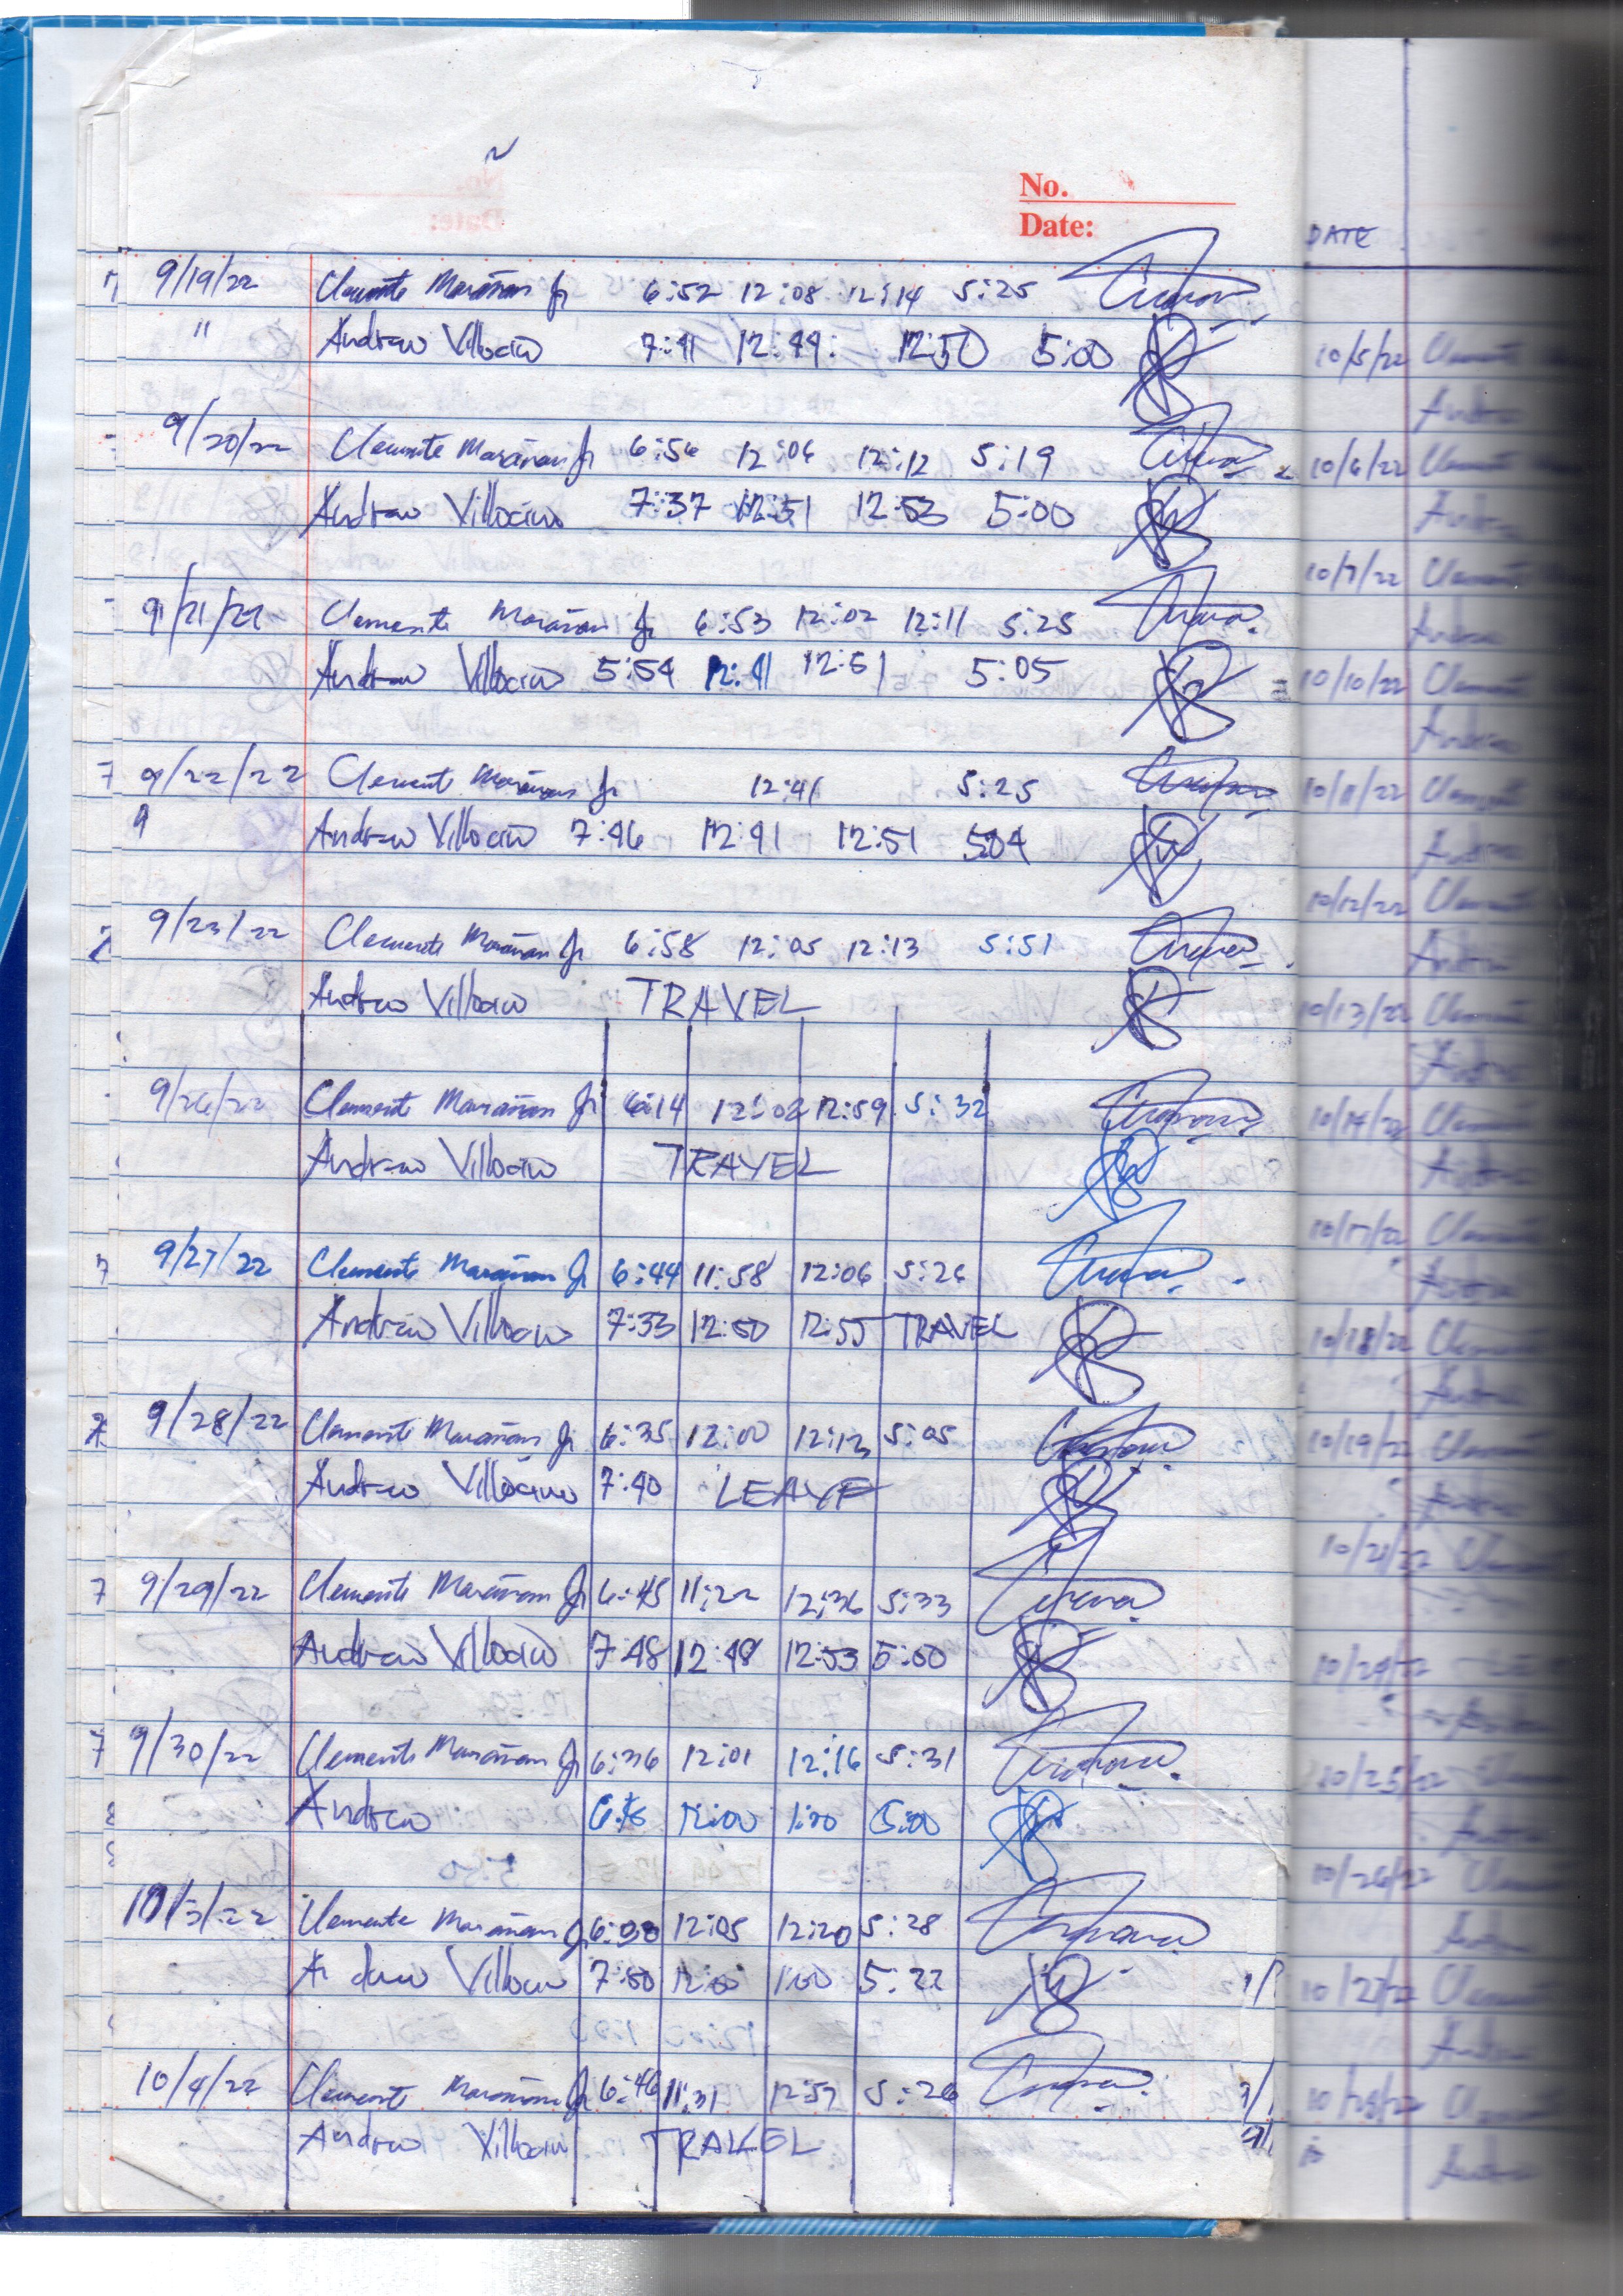 No.
Date:
9/19/22 Clemente Marañon Jr 6:52 12:08 12:14 5:25
" Andrew Villocino 7:41 12:49: 12:50 5:00
9/20/22 Clemente Marañon Jr 6:56 12:06 12:12 5:19
Andrew Villocino 7:37 12:51 12:53 5:00
9/21/22 Clemente Marañon Jr 6:53 12:02 12:11 5:25
Andrew Villocino 5:54 12:41 12:51 5:05
9/22/22 Clemente Marañon Jr 12:41 5:25
9 Andrew Villocino 7:46 12:41 12:51 504
9/23/22 Clemente Marañon Jr 6:58 12:05 12:13 5:51
Andrew Villocino TRAVEL
9/26/22 Clemente Marañon Jr 6:14 12:02 12:59 5:32
Andrew Villocino TRAVEL
9/27/22 Clemente Marañon Jr 6:44 11:58 12:06 5:26
Andrew Villocino 7:33 12:50 12:55 TRAVEL
9/28/22 Clemente Marañon Jr 6:35 12:00 12:12 5:05
Andrew Villocino 7:40 LEAVE
9/29/22 Clemente Marañon Jr 6:45 11:22 12:36 5:33
Andrew Villocino 7:48 12:48 12:53 5:00
9/30/22 Clemente Marañon Jr 6:36 12:01 12:16 5:31
Andrew 12:00 1:00 5:00
10/3/22 Clemente Marañon Jr 12:05 12:20 5:28
Andrew Villocino 7:50 12:00 1:00 5:22
10/4/22 Clemente Marañon Jr 6:46 11:31 12:57 5:26
Andrew Villocino TRAVEL
DATE
10/5/22 Clemente
Andrew
10/6/22 Clemente
Andrew
10/7/22 Clemente
Andrew
10/10/22 Clemente
Andrew
10/11/22 Clemente
Andrew
10/12/22 Clemente
Andrew
10/13/22 Clemente
Andrew
10/14/22 Clemente
Andrew
10/17/22 Clemente
Andrew
10/18/22 Clemente
Andrew
10/19/22 Clemente
Andrew
10/21/22 Clemente
10/24/22
Andrew
10/25/22 Clemente
Andrew
10/26/22 Clemente
Andrew
10/27/22 Clemente
Andrew
10/28/22 Clemente
Andrew